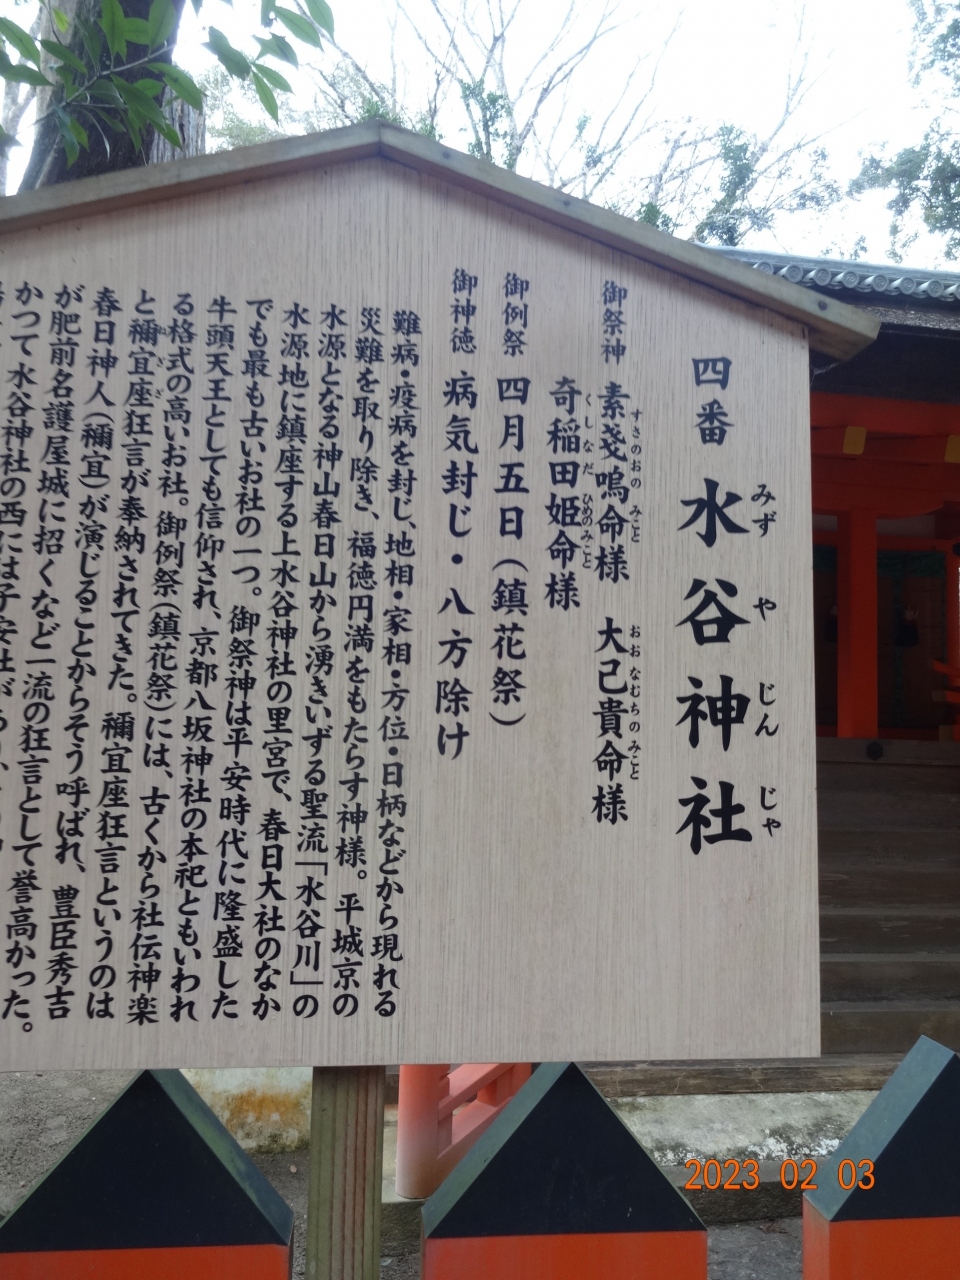 四番 水谷神社
みずやじんじゃ
御祭神 素戔嗚命様 大己貴命様
すさのおのみこと おおなむちのみこと
奇稲田姫命様
くしなだひめのみこと
御例祭 四月五日（鎮花祭）
御神徳 病気封じ・八方除け
難病・疫病を封じ、地相・家相・方位・日柄などから現れる
災難を取り除き、福徳円満をもたらす神様。平城京の
水源となる神山春日山から湧きいずる聖流「水谷川」の
水源地に鎮座する上水谷神社の里宮で、春日大社のなか
でも最も古いお社の一つ。御祭神は平安時代に隆盛した
牛頭天王としても信仰され、京都八坂神社の本祀ともいわれ
る格式の高いお社。御例祭（鎮花祭）には、古くから社伝神楽
と禰宜座狂言が奉納されてきた。禰宜座狂言というのは
ねぎざ
春日神人（禰宜）が演じることからそう呼ばれ、豊臣秀吉
が肥前名護屋城に招くなど一流の狂言として誉高かった。
かつて水谷神社の西には子安社が
2023 02 03